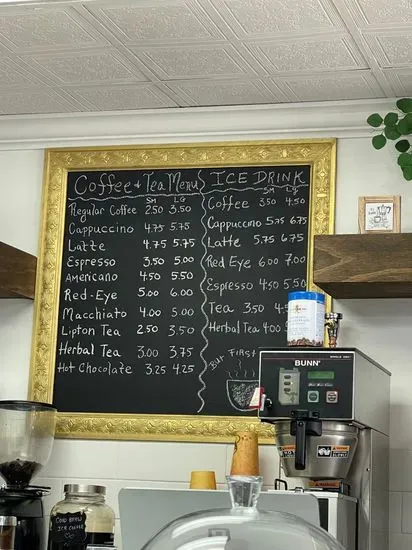 Coffee + Tea Menu
SM LG
Regular Coffee 2.50 3.50
Cappuccino 4.75 5.75
Latte 4.75 5.75
Espresso 3.50 5.00
Americano 4.50 5.50
Red-Eye 5.00 6.00
Macchiato 4.00 5.00
Lipton Tea 2.50 3.50
Herbal Tea 3.00 3.75
Hot Chocolate 3.25 4.25
ICE DRINK
SM LG
Coffee 3.50 4.50
Cappuccino 5.75 6.75
Latte 5.75 6.75
Red Eye 6.00 7.00
Espresso 4.50 5.50
Tea 3.50 4.5
Herbal Tea 4.00
But FIRST
BUNN
COLD BREW
ICE COFFEE